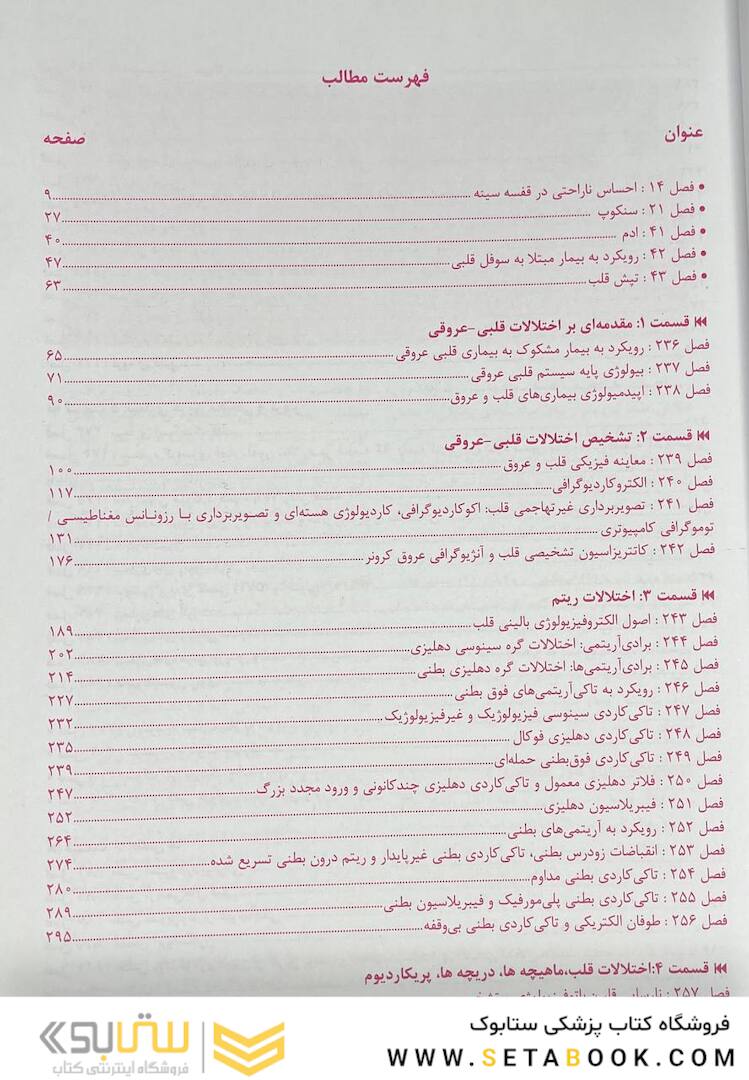 فهرست مطالب
عنوان صفحه
• فصل ۱۴ : احساس ناراحتی در قفسه سینه ۹
• فصل ۲۱ : سنکوپ ۲۷
• فصل ۴۱ : ادم ۴۰
• فصل ۴۲ : رویکرد به بیمار مبتلا به سوفل قلبی ۴۷
• فصل ۴۳ : تپش قلب ۶۳
⏮ قسمت ۱: مقدمه‌ای بر اختلالات قلبی-عروقی
فصل ۲۳۶ : رویکرد به بیمار مشکوک به بیماری قلبی عروقی ۶۵
فصل ۲۳۷ : بیولوژی پایه سیستم قلبی عروقی ۷۱
فصل ۲۳۸ : اپیدمیولوژی بیماری‌های قلب و عروق ۹۰
⏮ قسمت ۲: تشخیص اختلالات قلبی-عروقی
فصل ۲۳۹ : معاینه فیزیکی قلب و عروق ۱۰۰
فصل ۲۴۰ : الکتروکاردیوگرافی ۱۱۷
فصل ۲۴۱ : تصویربرداری غیرتهاجمی قلب: اکوکاردیوگرافی، کاردیولوژی هسته‌ای و تصویربرداری با رزونانس مغناطیسی /
توموگرافی کامپیوتری ۱۳۱
فصل ۲۴۲ : کاتتریزاسیون تشخیصی قلب و آنژیوگرافی عروق کرونر ۱۷۶
⏮ قسمت ۳: اختلالات ریتم
فصل ۲۴۳ : اصول الکتروفیزیولوژی بالینی قلب ۱۸۹
فصل ۲۴۴ : برادی‌آریتمی: اختلالات گره سینوسی دهلیزی ۲۰۲
فصل ۲۴۵ : برادی‌آریتمی‌ها: اختلالات گره دهلیزی بطنی ۲۱۴
فصل ۲۴۶ : رویکرد به تاکی‌آریتمی‌های فوق بطنی ۲۲۷
فصل ۲۴۷ : تاکی‌کاردی سینوسی فیزیولوژیک و غیرفیزیولوژیک ۲۳۲
فصل ۲۴۸ : تاکی‌کاردی دهلیزی فوکال ۲۳۵
فصل ۲۴۹ : تاکی‌کاردی فوق‌بطنی حمله‌ای ۲۳۹
فصل ۲۵۰ : فلاتر دهلیزی معمول و تاکی‌کاردی دهلیزی چندکانونی و ورود مجدد بزرگ ۲۴۷
فصل ۲۵۱ : فیبریلاسیون دهلیزی ۲۵۲
فصل ۲۵۲ : رویکرد به آریتمی‌های بطنی ۲۶۴
فصل ۲۵۳ : انقباضات زودرس بطنی، تاکی‌کاردی بطنی غیرپایدار و ریتم درون بطنی تسریع شده ۲۷۴
فصل ۲۵۴ : تاکی‌کاردی بطنی مداوم ۲۸۰
فصل ۲۵۵ : تاکی‌کاردی بطنی پلی‌مورفیک و فیبریلاسیون بطنی ۲۸۹
فصل ۲۵۶ : طوفان الکتریکی و تاکی‌کاردی بطنی بی‌وقفه ۲۹۵
⏮ قسمت ۴:اختلالات قلب،ماهیچه ها، دریچه ها، پریکاردیوم
فصل ۲۵۷ :
فروشگاه کتاب پزشکی ستابوک
WWW.SETABOOK.COM
ستابوک
فروشگاه اینترنتی کتاب